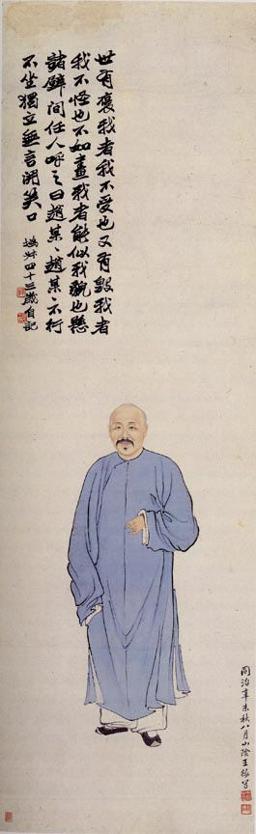 世有褒我者我不愛也又有毀我者
我不怪也不如畫我者能似我貌也懸
諸壁間任人呼之曰趙某、趙某、不行
不坐獨立無言開笑口
撝叔四十三歲自記
同治辛未秋八月山陰王綝寫